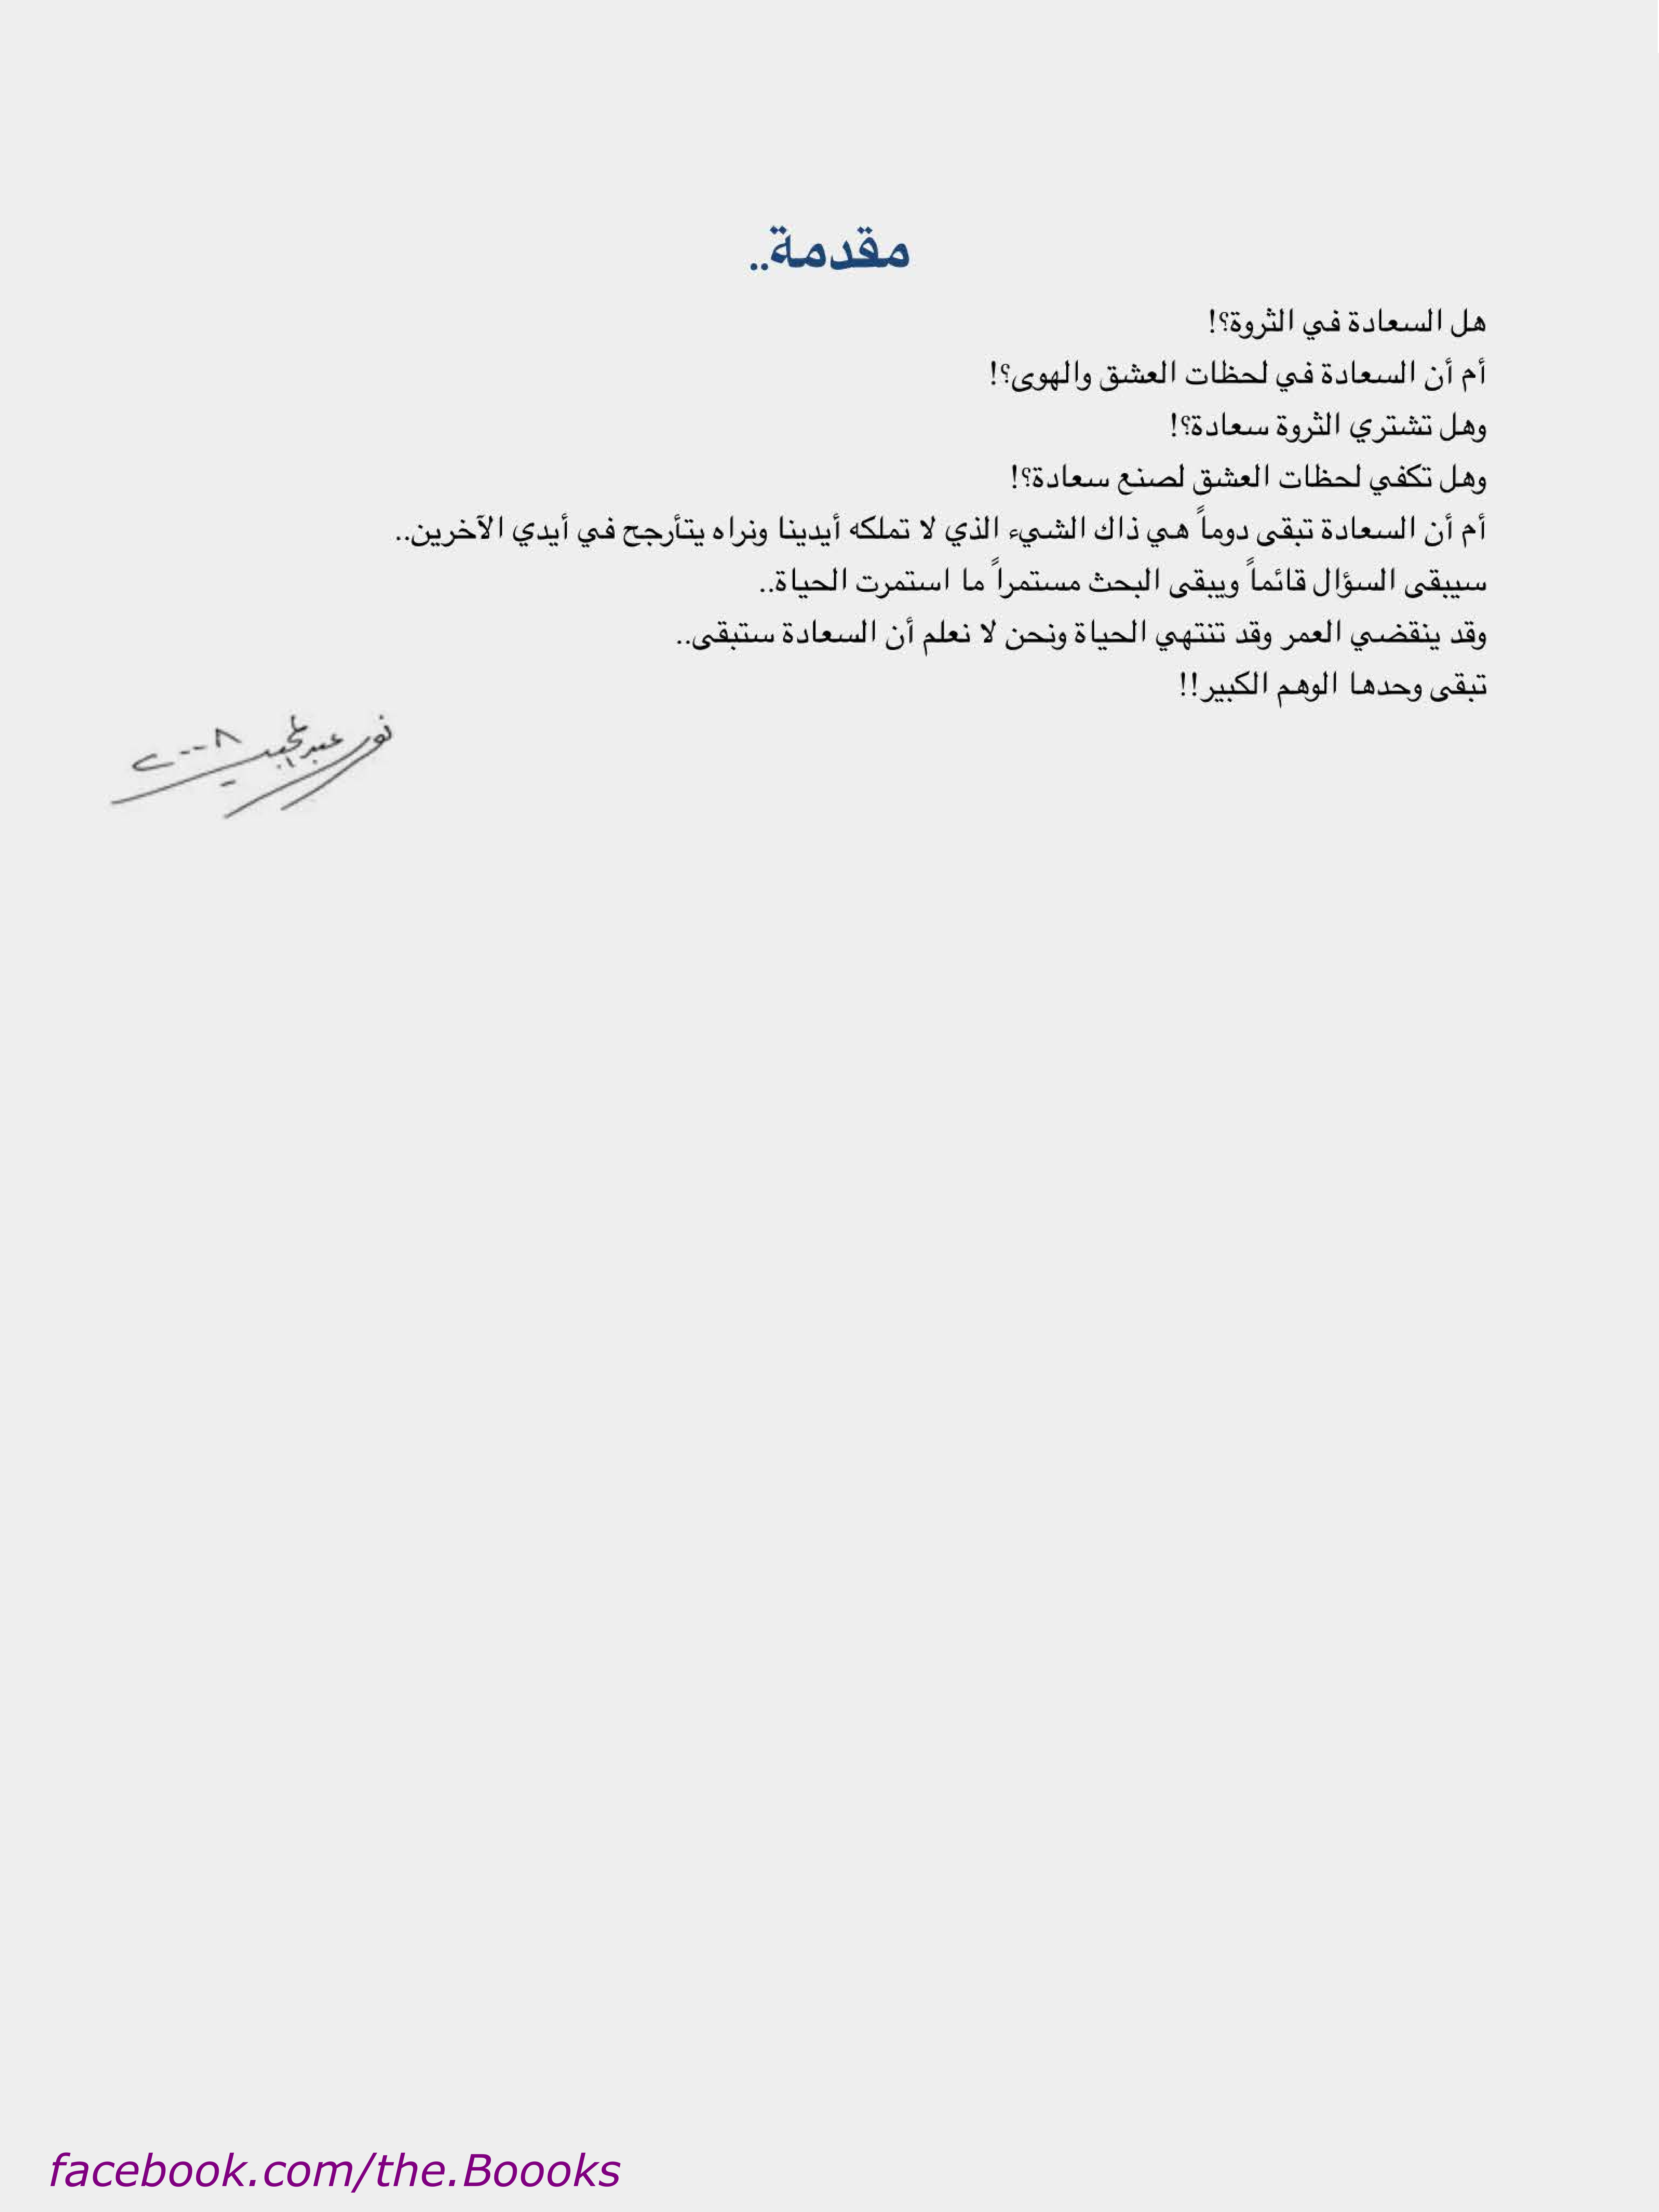 مقدمة..
هل السعادة في الثروة؟!
أم أن السعادة في لحظات العشق والهوى؟!
وهل تشتري الثروة سعادة؟!
وهل تكفي لحظات العشق لصنع سعادة؟!
أم أن السعادة تبقى دوماً هي ذاك الشيء الذي لا تملكه أيدينا ونراه يتأرجح في أيدي الآخرين..
سيبقى السؤال قائماً ويبقى البحث مستمراً ما استمرت الحياة..
وقد ينقضي العمر وقد تنتهي الحياة ونحن لا نعلم أن السعادة ستبقى..
تبقى وحدها الوهم الكبير!!
نور عبد المجيد ٢٠٠٨
facebook.com/the.Boooks